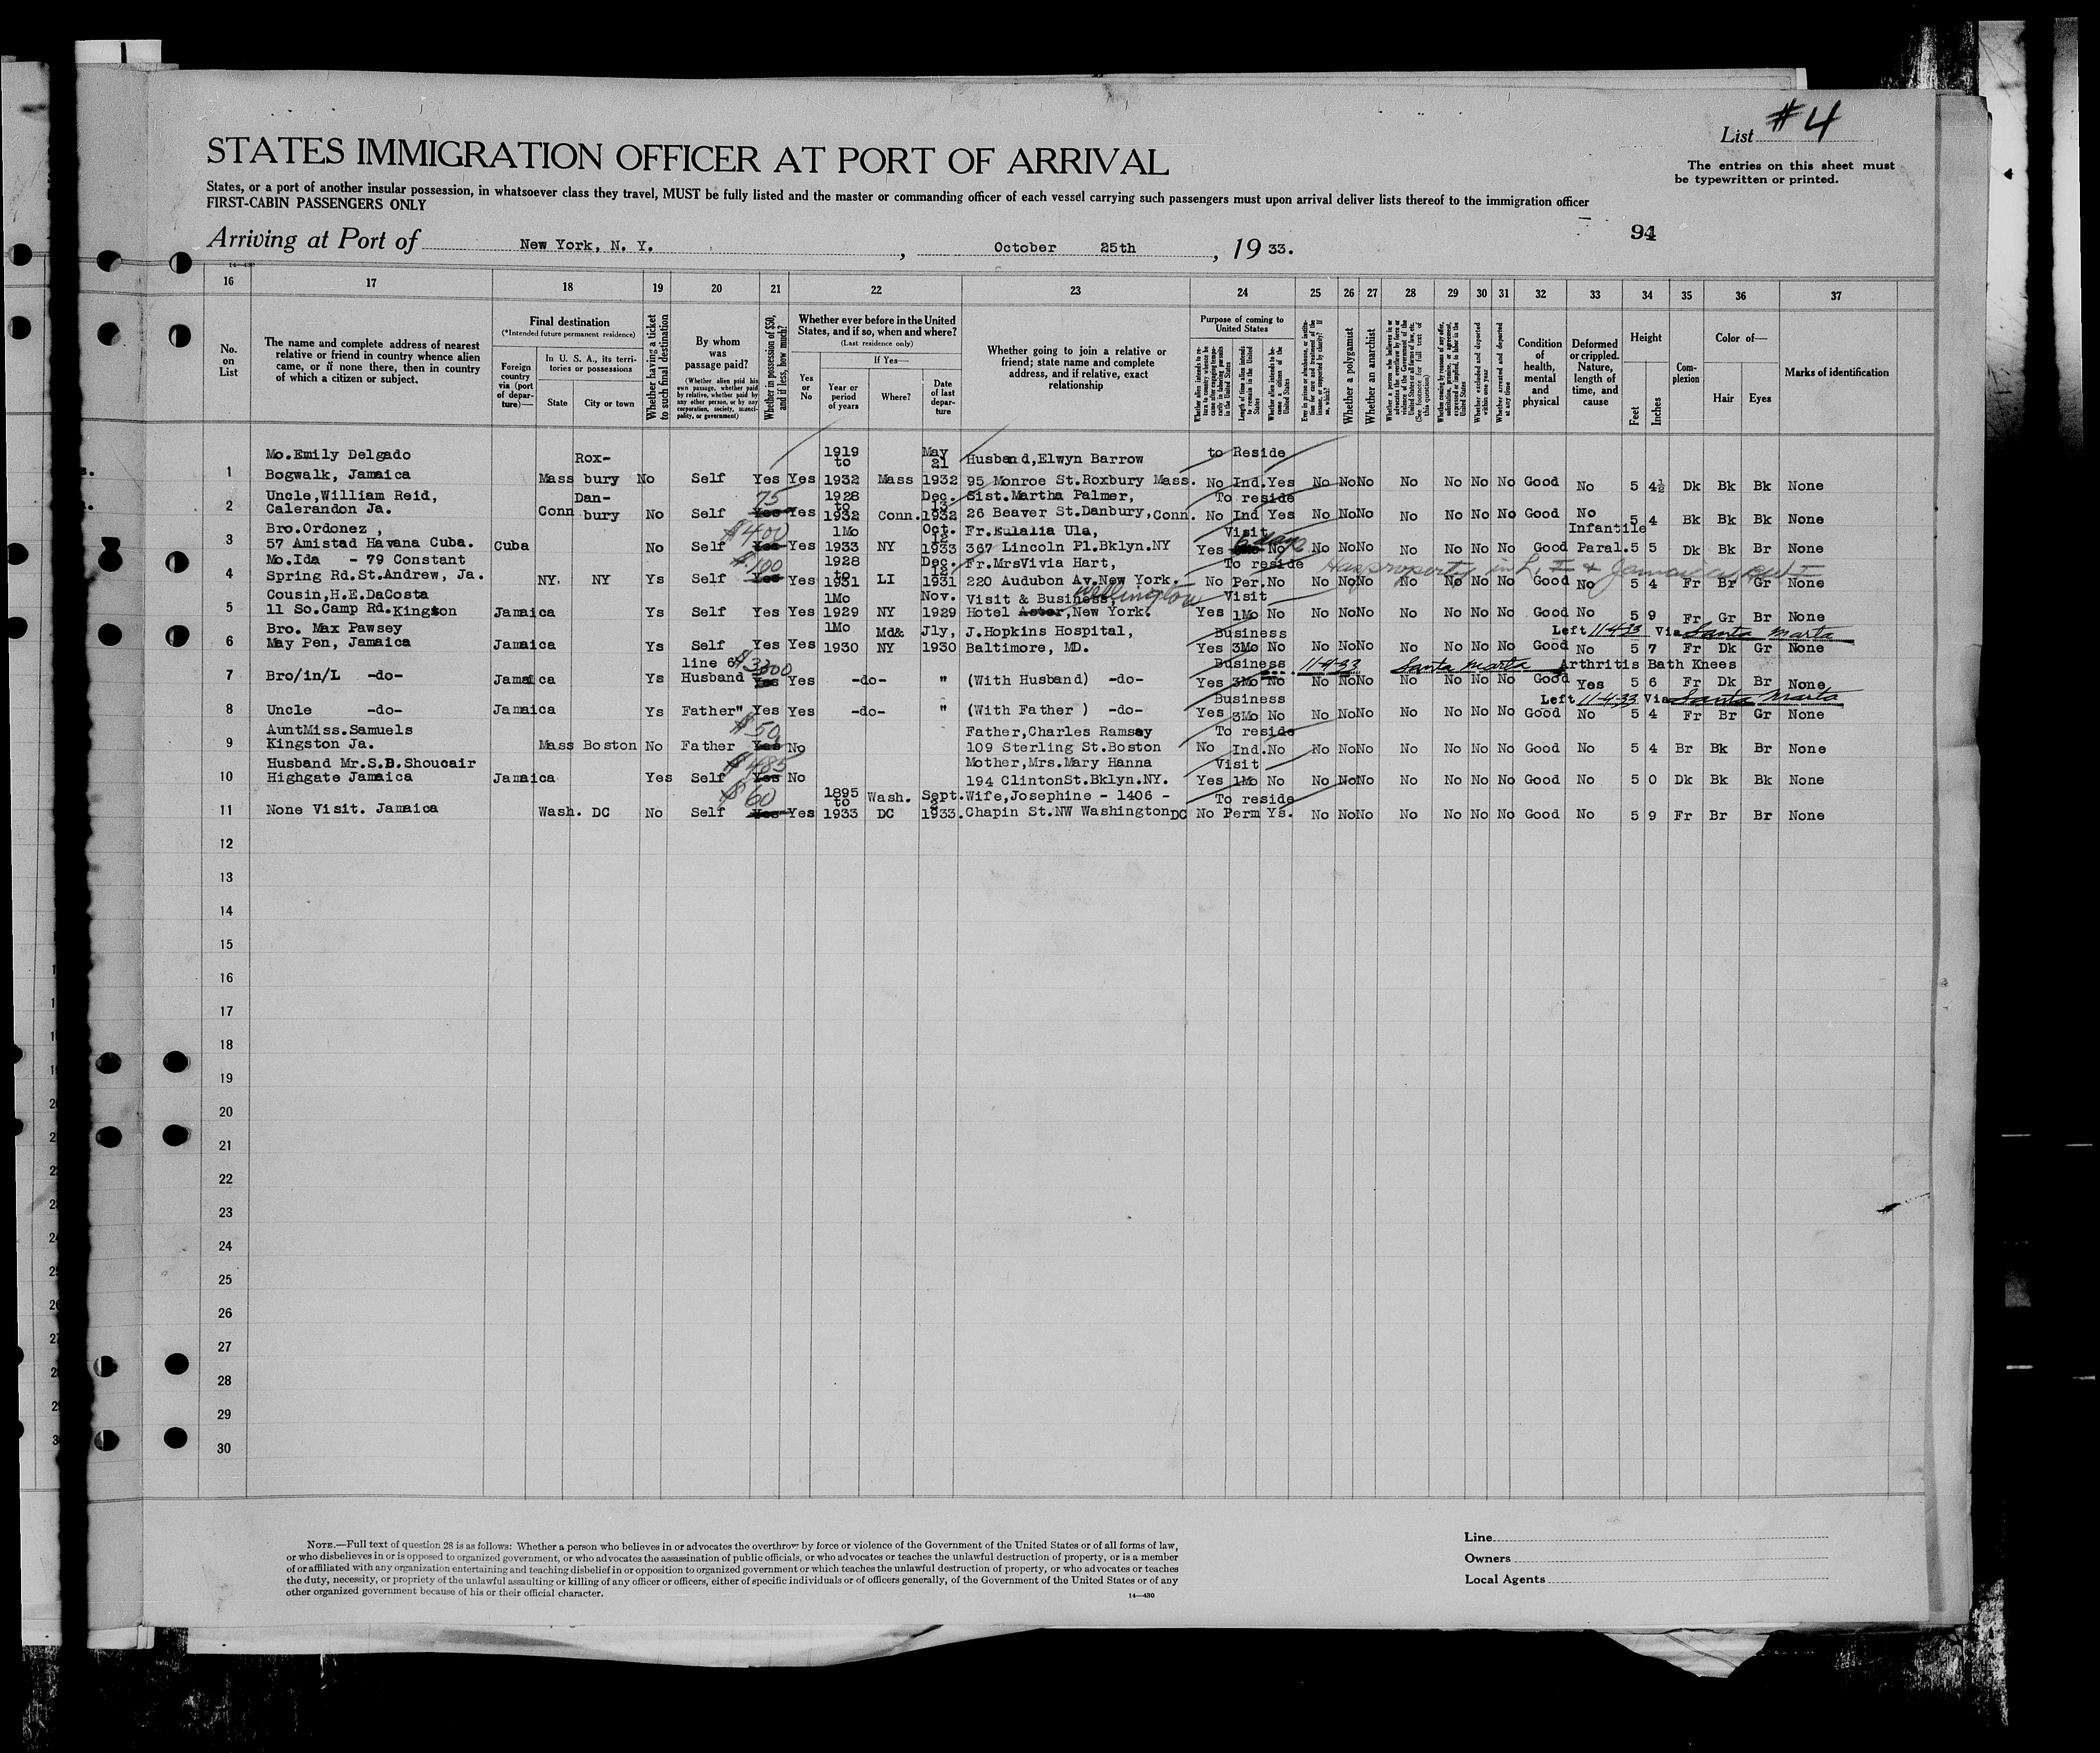 List #4
STATES IMMIGRATION OFFICER AT PORT OF ARRIVAL
The entries on this sheet must
be typewritten or printed.
States, or a port of another insular possession, in whatsoever class they travel, MUST be fully listed and the master or commanding officer of each vessel carrying such passengers must upon arrival deliver lists thereof to the immigration officer
FIRST-CABIN PASSENGERS ONLY
94
Arriving at Port of New York, N. Y. , October 25th , 19 33.
16 17 18 19 20 21 22 23 24 25 26 27 28 29 30 31 32 33 34 35 36 37
No. on List
The name and complete address of nearest relative or friend in country whence alien came, or if none there, then in country of which a citizen or subject.
Final destination
(*Intended future permanent residence)
Foreign country via (port of departure)—
In U. S. A., its territories or possessions
State
City or town
Whether having a ticket to such final destination
By whom was passage paid?
(Whether alien paid his own passage, whether paid by relative, whether paid by any other person, or by any corporation, society, municipality, or government)
Whether in possession of $50, and if less, how much?
Whether ever before in the United States, and if so, when and where?
(Last residence only)
Yes or No
If Yes—
Year or period of years
Where?
Date of last departure
Whether going to join a relative or friend; state name and complete address, and if relative, exact relationship
Purpose of coming to United States
Length of time alien intends to remain in the United States
Whether alien intends to become a citizen of the United States
Whether a polygamist
Whether an anarchist
Whether excluded and deported within one year
Whether arrested and deported at any time
Condition of health, mental and physical
Deformed or crippled. Nature, length of time, and cause
Height
Feet
Inches
Complexion
Color of—
Hair
Eyes
Marks of identification
Mo.Emily Delgado Rox- 1919 to May 21 Husband,Elwyn Barrow to Reside
1 Bogwalk, Jamaica Mass bury No Self Yes Yes 1932 Mass 1932 95 Monroe St.Roxbury Mass. No Ind. Yes No No No No No No No Good No 5 4½ Dk Bk Bk None
Uncle,William Reid, Dan- 75 1928 to Dec. 13 Sist.Martha Palmer, To reside
2 Calerandon Ja. Conn bury No Self Yes Yes 1932 Conn. 1932 26 Beaver St.Danbury,Conn. No Ind Yes No No No No No No No Good No 5 4 Bk Bk Bk None
Bro.Ordonez , $400 1Mo Oct. 12 Fr.Eulalia Ula, Visit 6 days Infantile
3 57 Amistad Havana Cuba. Cuba No Self Yes Yes 1933 NY 1933 367 Lincoln Pl.Bklyn.NY Yes No No No No No No No No Good Paral. 5 5 Dk Bk Br None
Mo.Ida - 79 Constant $100 1928 to Dec. 12 Fr.MrsVivia Hart, To reside Has property in L. I & Jamaica BWI
4 Spring Rd.St.Andrew, Ja. NY. NY Ys Self Yes Yes 1931 LI 1931 220 Audubon Av.New York. No Per. No No No No No No No No Good No 5 4 Fr Br Gr None
Cousin,H.E.DaCosta 1Mo Nov. Visit & Business, Wellington Visit
5 11 So.Camp Rd.Kingston Jamaica Ys Self Yes Yes 1929 NY 1929 Hotel Astor,New York. Yes 1Mo No No No No No No No No Good No 5 9 Fr Gr Br None
Bro. Max Pawsey 1Mo Md& Jly, J.Hopkins Hospital, Business Left 11-4-33 Via Santa Marta
6 May Pen, Jamaica Jamaica Ys Self Yes Yes 1930 NY 1930 Baltimore, MD. Yes 3Mo No No No No No No No No Good No 5 7 Fr Dk Gr None
line 6 $3300 Business 11-4-33 Santa Marta Arthritis Bath Knees
7 Bro/in/L -do- Jamaica Ys Husband Yes Yes -do- " (With Husband) -do- Yes 3Mo No No No No No No No No Good Yes 5 6 Fr Dk Br None
Business Left 11-4-33 Via Santa Marta
8 Uncle -do- Jamaica Ys Father" Yes Yes -do- " (With Father ) -do- Yes 3Mo No No No No No No No No Good No 5 4 Fr Br Gr None
AuntMiss.Samuels $50 Father,Charles Ramsay To reside
9 Kingston Ja. Mass Boston No Father Yes No 109 Sterling St.Boston No Ind. No No No No No No No No Good No 5 4 Br Bk Br None
Husband Mr.S.B.Shoucair $485 Mother,Mrs.Mary Hanna Visit
10 Highgate Jamaica Jamaica Yes Self Yes No 194 ClintonSt.Bklyn.NY. Yes 1Mo No No No No No No No No Good No 5 0 Dk Bk Bk None
$60 1895 to Wash. Sept. Wife,Josephine - 1406 - To reside
11 None Visit. Jamaica Wash. DC No Self Yes Yes 1933 DC 1933. Chapin St.NW Washington DC No Perm Ys. No No No No No No No Good No 5 9 Fr Br Br None
12
13
14
15
16
17
18
19
20
21
22
23
24
25
26
27
28
29
30
NOTE.—Full text of question 28 is as follows: Whether a person who believes in or advocates the overthrow by force or violence of the Government of the United States or of all forms of law,
or who disbelieves in or is opposed to organized government, or who advocates the assassination of public officials, or who advocates or teaches the unlawful destruction of property, or is a member
of or affiliated with any organization entertaining and teaching disbelief in or opposition to organized government or which teaches the unlawful destruction of property, or who advocates or teaches
the duty, necessity, or propriety of the unlawful assaulting or killing of any officer or officers, either of specific individuals or of officers generally, of the Government of the United States or of any
other organized government because of his or their official character.
14—430
Line
Owners
Local Agents